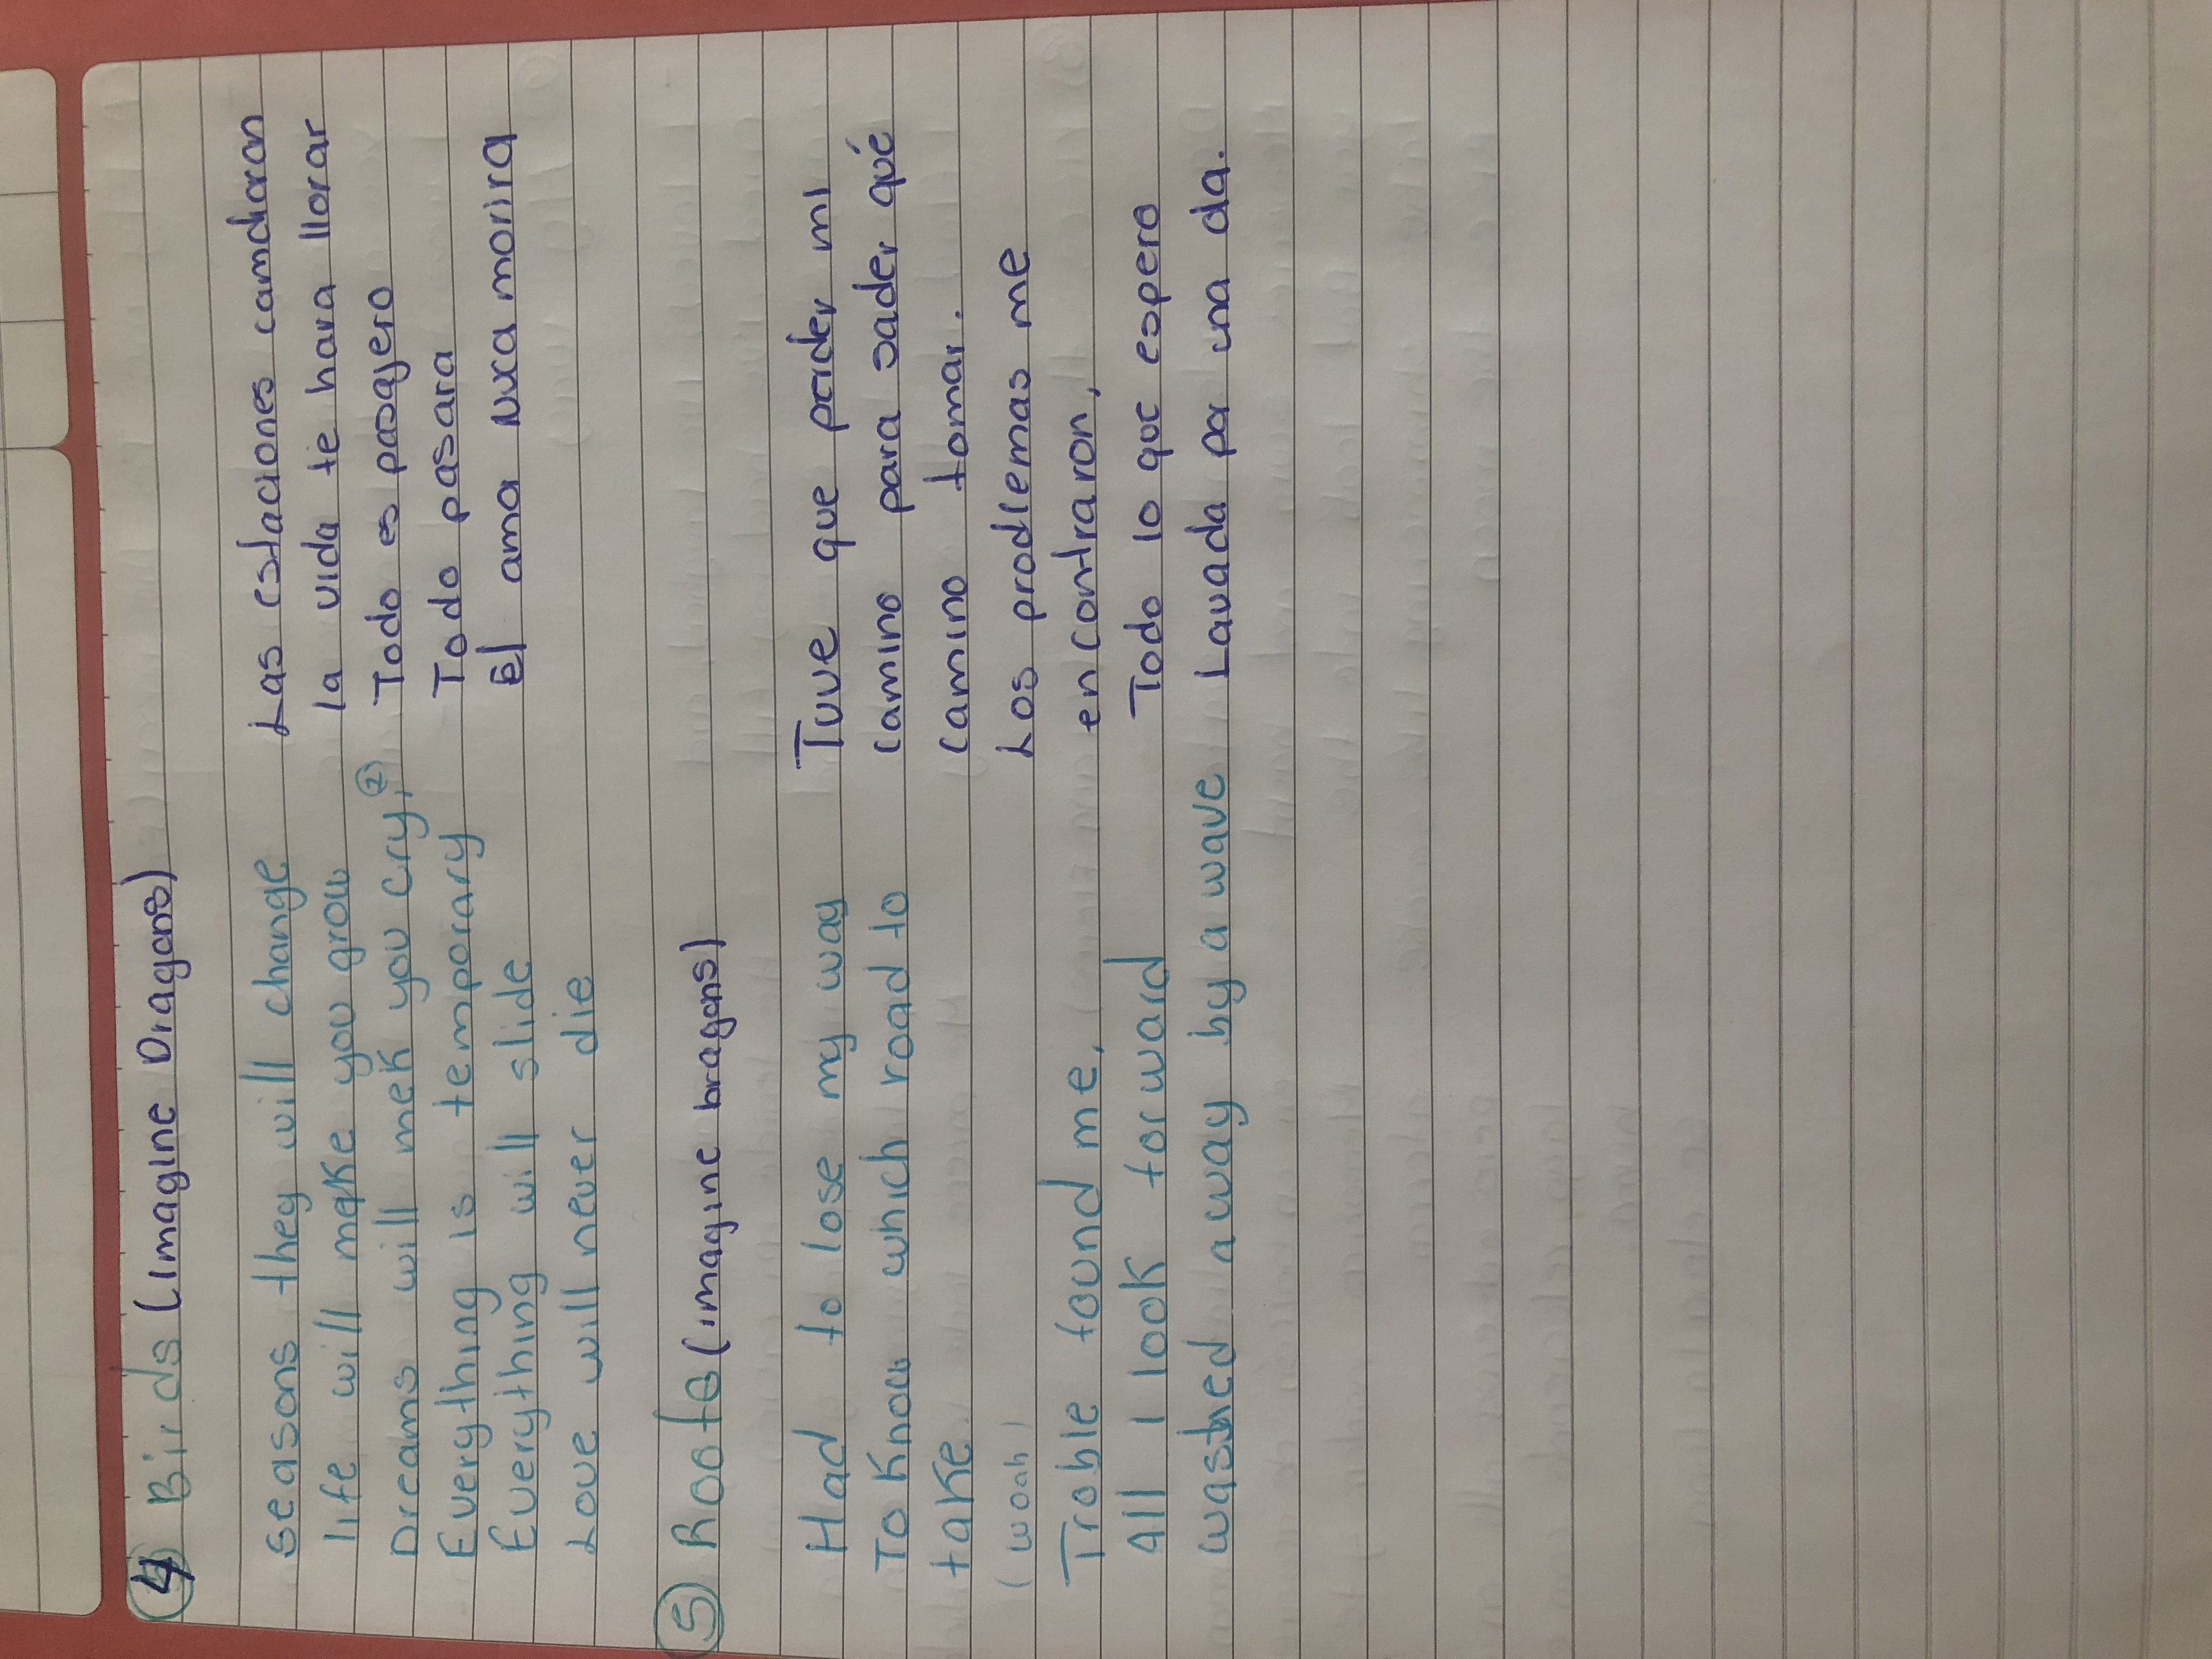 4 Birds (Imagine Dragons)
seasons they will change Las estaciones camdiaran
life will make you grow la vida te hara llorar
Dreams will mek you cry, (2) Todo es pasajero
Everything is temporary Todo pasara
Everything will slide El ama Nuca morira
Love will never die
5 Roots (imagine bragons)
Had to lose my way Tuve que perder mi
To Know which road to camino para sader qué
take camino tomar.
(woah) Los prodlemas me
Troble found me, encontraron,
All I look forward Todo lo que espero
washed away by a wave Lavada por una da.